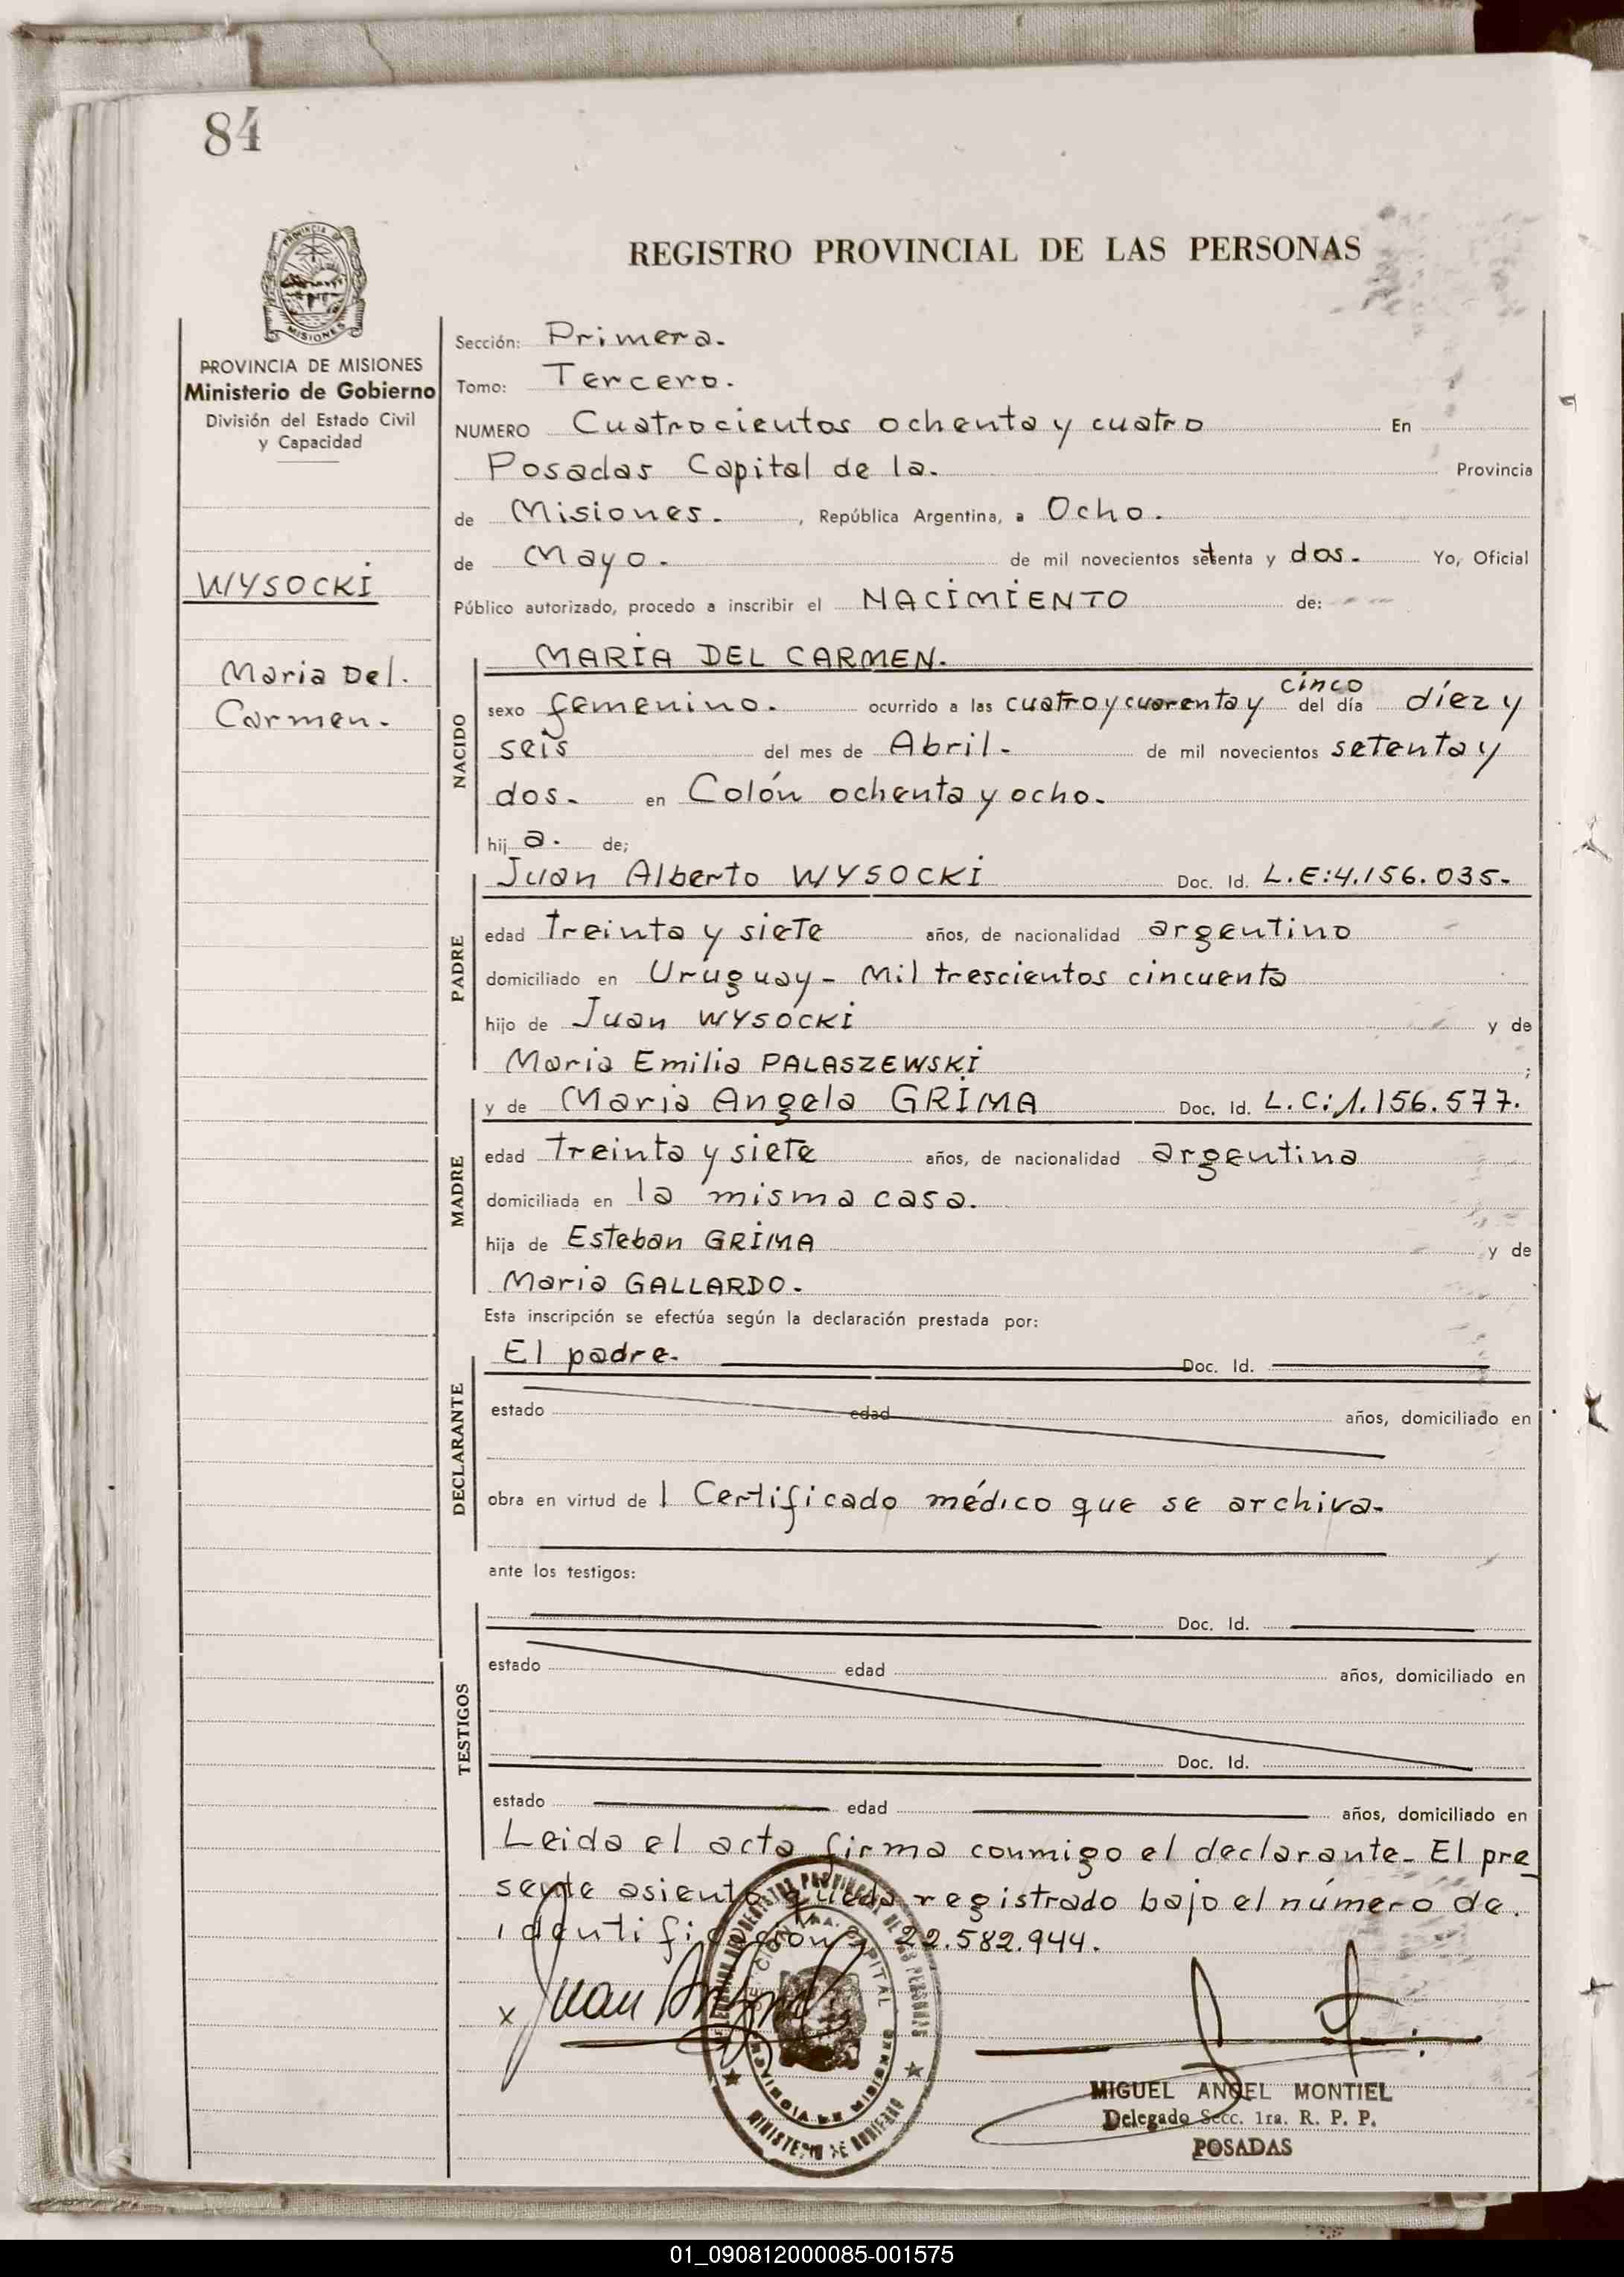 84
PROVINCIA DE MISIONES
Ministerio de Gobierno
División del Estado Civil
y Capacidad
WYSOCKI
Maria Del.
Carmen.
REGISTRO PROVINCIAL DE LAS PERSONAS
Sección: Primera.
Tomo: Tercero.
NUMERO Cuatrocientos ochenta y cuatro En
Posadas Capital de la. Provincia
de Misiones. , República Argentina, a Ocho.
de Mayo. de mil novecientos setenta y dos. Yo, Oficial
Público autorizado, procedo a inscribir el NACIMIENTO de:
MARIA DEL CARMEN.
NACIDO
sexo femenino. ocurrido a las cuatro y cuarenta y cinco del día diez y
seis del mes de Abril. de mil novecientos setenta y
dos. en Colón ochenta y ocho.
hij a. de;
PADRE
Juan Alberto WYSOCKI Doc. Id. L.E:4.156.035.
edad treinta y siete años, de nacionalidad argentino
domiciliado en Uruguay - Mil trescientos cincuenta
hijo de Juan WYSOCKI y de
Maria Emilia PALASZEWSKI ;
MADRE
y de Maria Angela GRIMA Doc. Id. L.C:1.156.577.
edad treinta y siete años, de nacionalidad argentina
domiciliada en la misma casa.
hija de Esteban GRIMA y de
Maria GALLARDO.
Esta inscripción se efectúa según la declaración prestada por:
DECLARANTE
El padre. Doc. Id.
estado edad años, domiciliado en
obra en virtud de 1 Certificado médico que se archiva.
ante los testigos:
TESTIGOS
Doc. Id.
estado edad años, domiciliado en
Doc. Id.
estado edad años, domiciliado en
Leida el acta firma conmigo el declarante. El pre
sente asiento queda registrado bajo el número de.
identificación 22.582.944.
x Juan
MIGUEL ANGEL MONTIEL
Delegado Secc. 1ra. R. P. P.
POSADAS
01_090812000085-001575